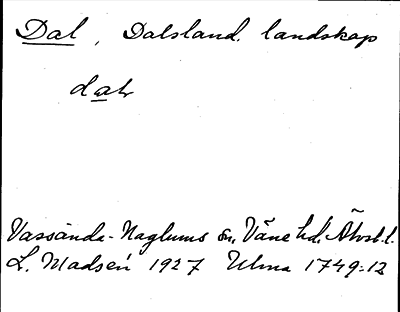 Dal, Dalsland, landskap
dal
Vassända-Naglums sn, Väne hd, Älvsb. l.
L. Madsén 1927 Ulma 1749:12